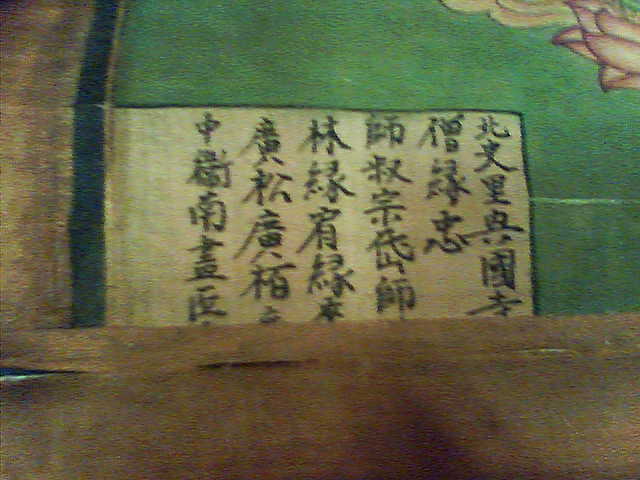 北吏里興國寺
僧緣忠
師叔宗岱師
林緣宥緣
廣松廣栢
中衛南畫匠